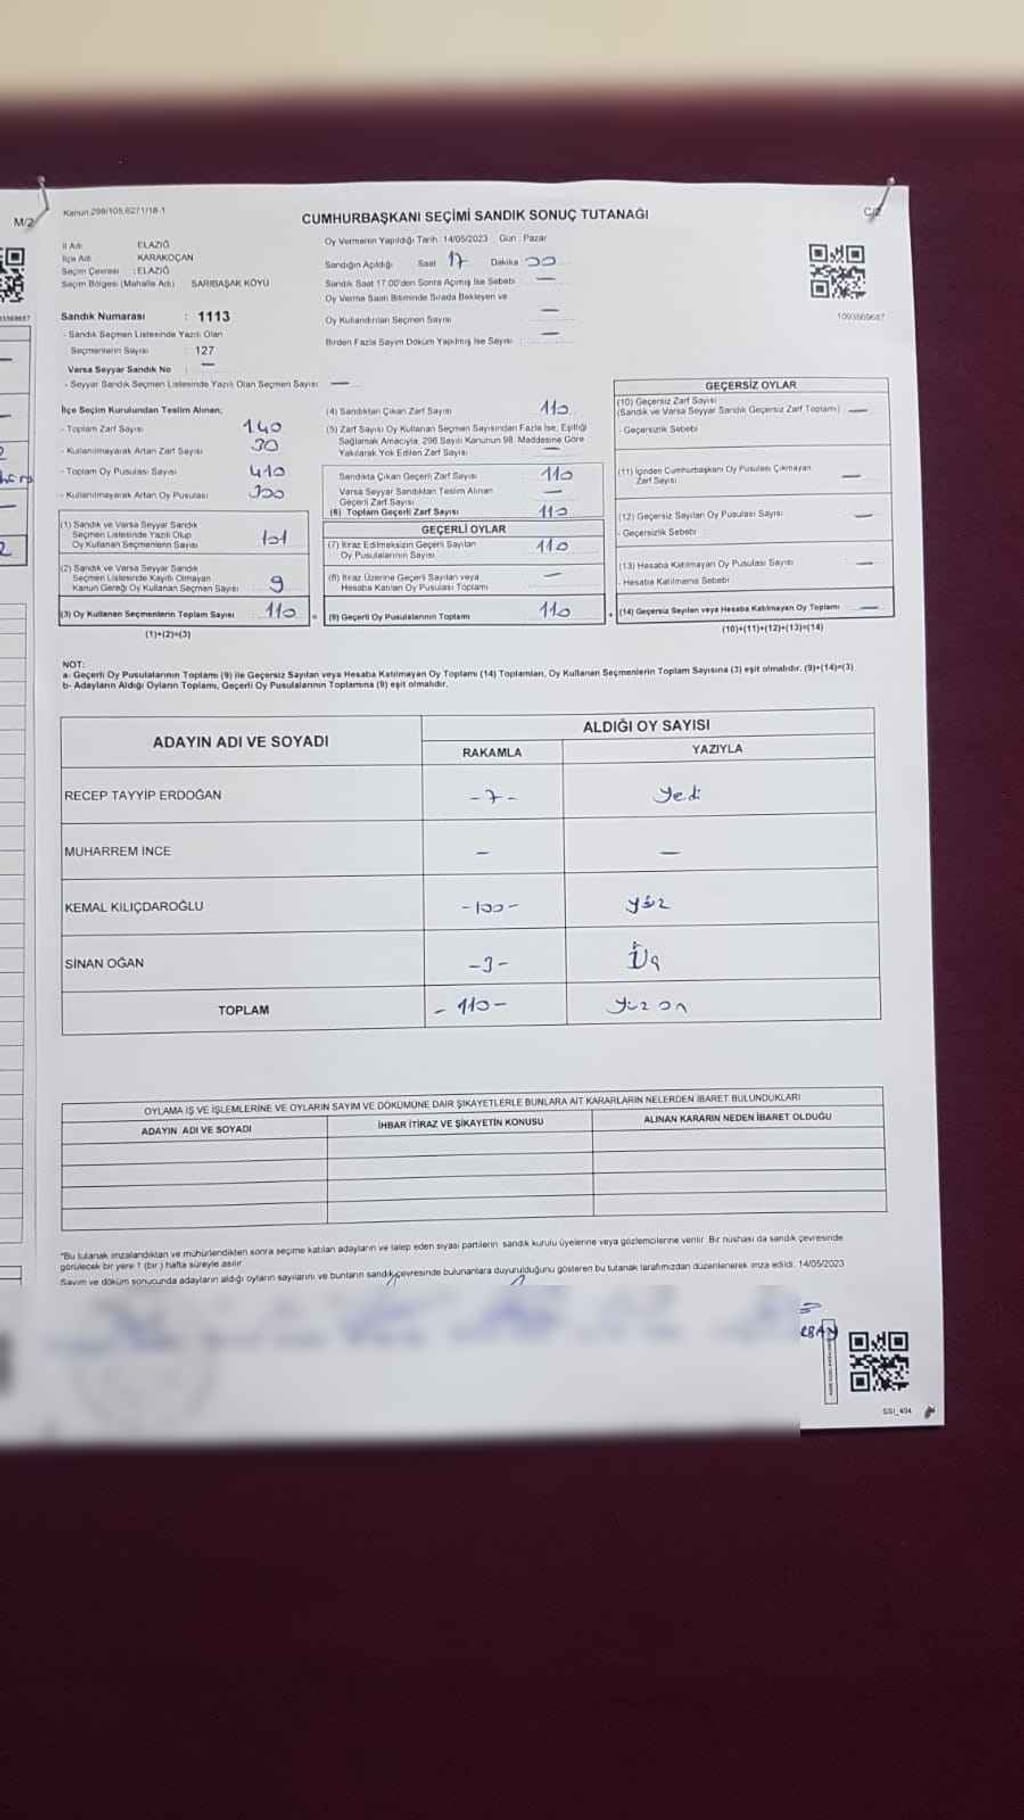 M/2
Kanun 298/105,6271/18-1
C/2
CUMHURBAŞKANI SEÇİMİ SANDIK SONUÇ TUTANAĞI
İl Adı ELAZIĞ
İlçe Adı KARAKOÇAN
Seçim Çevresi : ELAZIĞ
Seçim Bölgesi (Mahalle Adı) SARIBAŞAK KÖYÜ
Sandık Numarası : 1113
- Sandık Seçmen Listesinde Yazılı Olan
Seçmenlerin Sayısı : 127
Varsa Seyyar Sandık No —
- Seyyar Sandık Seçmen Listesinde Yazılı Olan Seçmen Sayısı —
Oy Vermenin Yapıldığı Tarih : 14/05/2023 Gün : Pazar
Sandığın Açıldığı Saat 17 Dakika 00
Sandık Saat 17.00'den Sonra Açılmış İse Sebebi —
Oy Verme Saati Bitiminde Sırada Bekleyen ve
Oy Kullandırılan Seçmen Sayısı —
Birden Fazla Sayım Döküm Yapılmış İse Sayısı : —
İlçe Seçim Kurulundan Teslim Alınan;
- Toplam Zarf Sayısı 140
- Kullanılmayarak Artan Zarf Sayısı 30
- Toplam Oy Pusulası Sayısı 410
- Kullanılmayarak Artan Oy Pusulası 300
(1) Sandık ve Varsa Seyyar Sandık
Seçmen Listesinde Yazılı Olup
Oy Kullanan Seçmenlerin Sayısı 101
(2) Sandık ve Varsa Seyyar Sandık
Seçmen Listesinde Kayıtlı Olmayan
Kanun Gereği Oy Kullanan Seçmen Sayısı 9
(3) Oy Kullanan Seçmenlerin Toplam Sayısı 110
(1)+(2)=(3)
(4) Sandıktan Çıkan Zarf Sayısı 110
(5) Zarf Sayısı Oy Kullanan Seçmen Sayısından Fazla İse, Eşitliği
Sağlamak Amacıyla, 298 Sayılı Kanunun 98. Maddesine Göre
Yakılarak Yok Edilen Zarf Sayısı —
Sandıkta Çıkan Geçerli Zarf Sayısı 110
Varsa Seyyar Sandıktan Teslim Alınan
Geçerli Zarf Sayısı —
(6) Toplam Geçerli Zarf Sayısı 110
GEÇERLİ OYLAR
(7) İtiraz Edilmeksizin Geçerli Sayılan
Oy Pusulalarının Sayısı 110
(8) İtiraz Üzerine Geçerli Sayılan veya
Hesaba Katılan Oy Pusulası Toplamı —
= (9) Geçerli Oy Pusulalarının Toplamı 110
GEÇERSİZ OYLAR
(10) Geçersiz Zarf Sayısı
(Sandık ve Varsa Seyyar Sandık Geçersiz Zarf Toplamı) —
- Geçersizlik Sebebi
(11) İçinden Cumhurbaşkanı Oy Pusulası Çıkmayan
Zarf Sayısı —
(12) Geçersiz Sayılan Oy Pusulası Sayısı —
- Geçersizlik Sebebi
(13) Hesaba Katılmayan Oy Pusulası Sayısı —
- Hesaba Katılmama Sebebi
+ (14) Geçersiz Sayılan veya Hesaba Katılmayan Oy Toplamı —
(10)+(11)+(12)+(13)=(14)
NOT:
a- Geçerli Oy Pusulalarının Toplamı (9) ile Geçersiz Sayılan veya Hesaba Katılmayan Oy Toplamı (14) Toplamları, Oy Kullanan Seçmenlerin Toplam Sayısına (3) eşit olmalıdır. (9)+(14)=(3)
b- Adayların Aldığı Oyların Toplamı, Geçerli Oy Pusulalarının Toplamına (9) eşit olmalıdır.
ADAYIN ADI VE SOYADI
ALDIĞI OY SAYISI
RAKAMLA YAZIYLA
RECEP TAYYİP ERDOĞAN -7- Yedi
MUHARREM İNCE — —
KEMAL KILIÇDAROĞLU -100- yüz
SİNAN OĞAN -3- Üç
TOPLAM - 110 - Yüz on
OYLAMA İŞ VE İŞLEMLERİNE VE OYLARIN SAYIM VE DÖKÜMÜNE DAİR ŞİKAYETLERLE BUNLARA AİT KARARLARIN NELERDEN İBARET BULUNDUKLARI
ADAYIN ADI VE SOYADI İHBAR İTİRAZ VE ŞİKAYETİN KONUSU ALINAN KARARIN NEDEN İBARET OLDUĞU
*Bu tutanak imzalandıktan ve mühürlendikten sonra seçime katılan adayların ve talep eden siyasi partilerin sandık kurulu üyelerine veya gözlemcilerine verilir. Bir nüshası da sandık çevresinde
görülecek bir yere 1 (bir) hafta süreyle asılır.
Sayım ve döküm sonucunda adayların aldığı oyların sayılarını ve bunların sandık çevresinde bulunanlara duyurulduğunu gösteren bu tutanak tarafımızdan düzenlenerek imza edildi. 14/05/2023